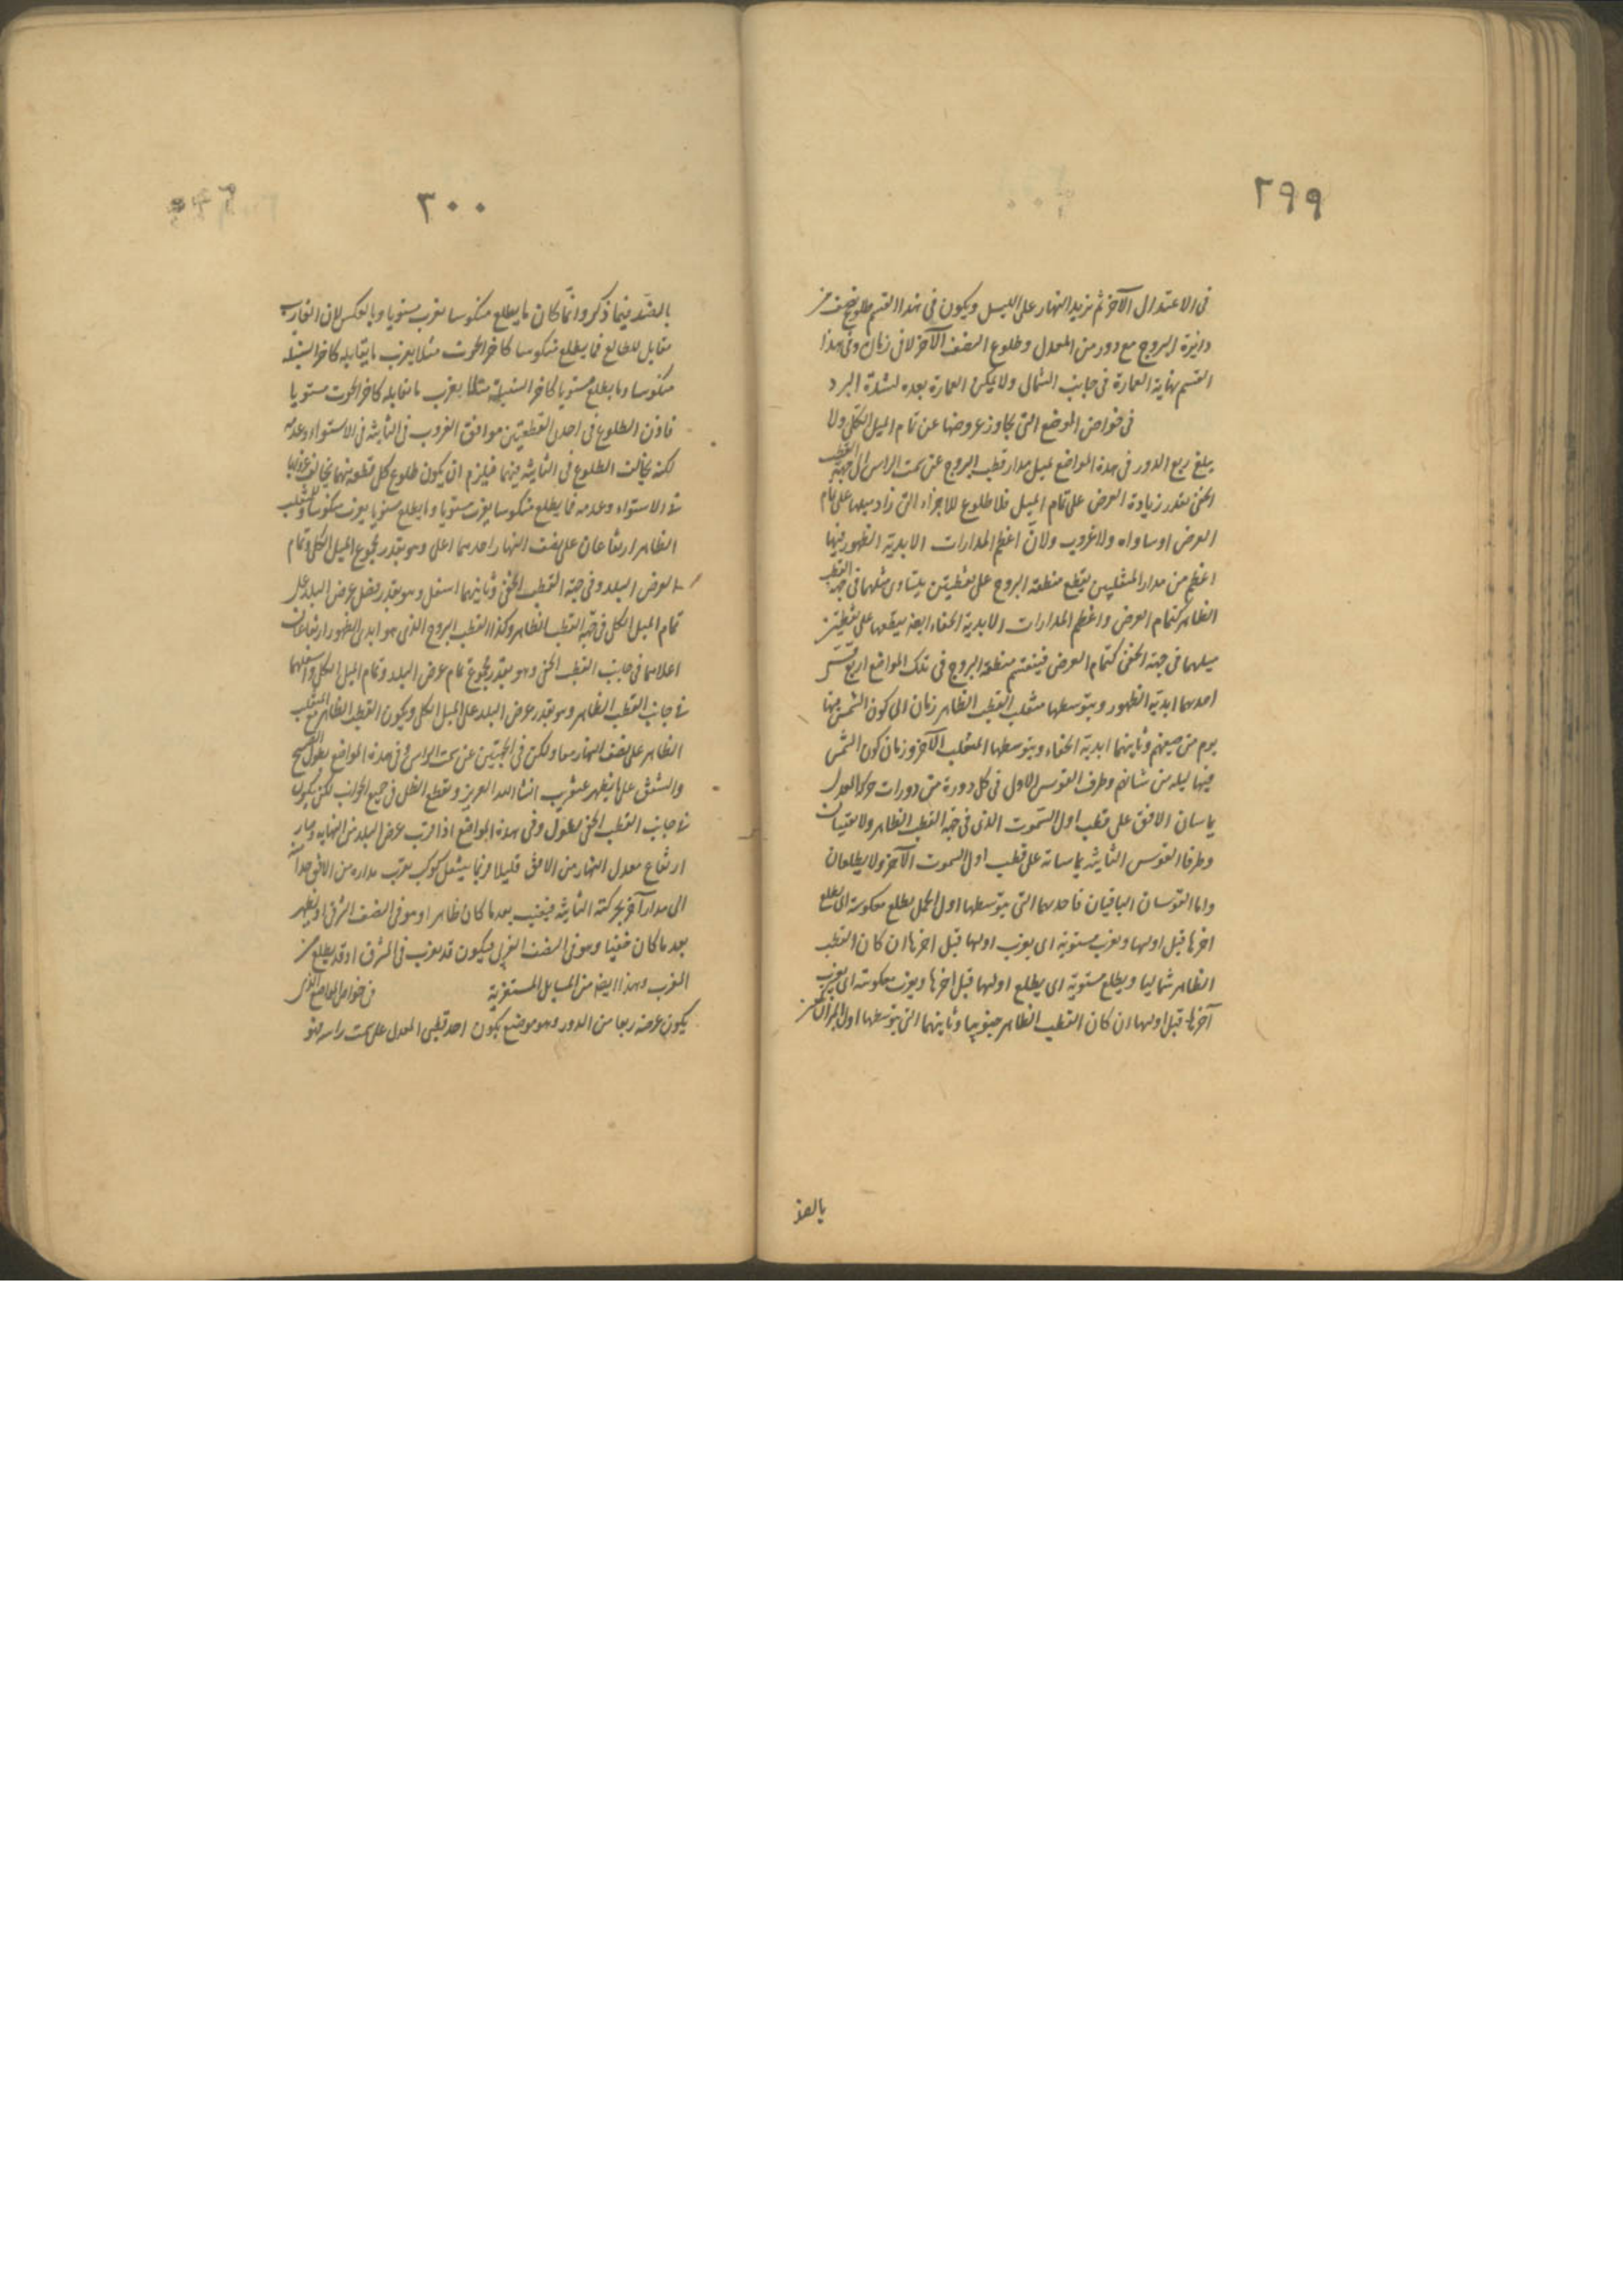 ٢٩٩
فى الاعتدال الآخر ثم يزيد النهار على الليل ويكون فى هذا القسم طلوع نصف من
دائرة البروج مع دور من المعدل وطلوع النصف الآخر لا فى زمان وفى هذا
القسم نهاية العمارة فى جانب الشمال ولا يمكن العمارة بعده لشدة البرد
فى خواص المواضع التى تجاوز عروضها عن تمام الميل الكلى ولا
يبلغ ربع الدور فى هذه المواضع لميل مدار قطب البروج عن سمت الراس الى جهة القطب
الخفى بقدر زيادة العرض على تمام الميل فلا طلوع للاجزاء التى زاد ميلها على تمام
العرض او ساواه ولا غروب ولان اعظم المدارات الابدية الظهور فيها
اعظم من مدار المنقلبين يقطع منطقة البروج على نقطتين يتساوى ميلهما فى جهة القطب
الظاهر كتمام العرض واعظم المدارات الابدية الخفاء ايضا يقطعها على نقطتين
ميلهما فى جهة الخفى كتمام العرض فينقسم منطقة البروج فى تلك المواضع اربع قسى
احدهما ابدية الظهور ويتوسطها منقلب القطب الظاهر زمان الى كون الشمس فيها
يوم من صيفهم وثانيهما ابدية الخفاء ويتوسطها المنقلب الآخر وزمان كون الشمس
فيها ليلة من شتائهم وطرفا القوس الاول فى كل دورة من دورات حركة المعدل
يماسان الافق على قطب اول السموت الذى فى جهة القطب الظاهر ولا يغيبان
وطرفا القوس الثانية يماسانه على قطب اول السموت الآخر ولا يطلعان
واما القوسان الباقيان فاحديهما التى يتوسطها اول الحمل يطلع معكوسة اى يطلع
اخرها قبل اولها ويغرب مستوية اى يغرب اولها قبل اخرها ان كان القطب
الظاهر شماليا ويطلع مستوية اى يطلع اولها قبل اخرها ويغرب معكوسة اى يغرب
آخرها قبل اولها ان كان القطب الظاهر جنوبيا وثانيهما التى يتوسطها اول الميزان
بالضد
٣٠٠
بالضد فيما ذكر وانما كان ما يطلع منكوسا يغرب مستويا وبالعكس لان الغارب
مقابل للطالع فما يطلع منكوسا كاخر الحوت مثلا يغرب ما يقابله كاخر السنبلة
منكوسا وما يطلع مستويا كاخر السنبلة مثلا يغرب ما يقابله كاخر الحوت مستويا
فاذن الطلوع فى احدى القطعتين موافق الغروب فى الثانية فى الاستواء وعدمه
لكنه يخالف الطلوع فى الثانية فيهما فيلزم ان يكون طلوع كل قطعة منهما يخالف غروبها
فى الاستواء وعدمه فما يطلع منكوسا يغرب مستويا وما يطلع مستويا يغرب منكوسا وللمنقلب
الظاهر ارتفاعان على نصف النهار احدهما اعلى وهو بقدر مجموع الميل الكلى وتمام
العرض البلد وفى جهة القطب الخفى وثانيهما اسفل وهو بقدر فضل عرض البلد على
تمام الميل الكلى فى جهة القطب الظاهر وكذا القطب البروج الذى هو ابدى الظهور ارتفاعان
اعلاهما فى جانب القطب الخفى وهو بقدر مجموع تمام عرض البلد وتمام الميل الكلى واسفلهما
فى جانب القطب الظاهر وهو بقدر عرض البلد على الميل الكلى ويكون القطب الظاهر مع المنقلب
الظاهر على نصف النهار معا ولكن فى الجهتين عن سمت الراس وفى هذه المواضع يطول الصبح
والشفق على ما يظهر عنقريب انشا الله العزيز ويقطع الظل فى جميع الجوانب لكن يكون
فى جانب القطب الخفى يطول وفى هذه المواضع اذا قرب عرض البلد من النهاية وصار
ارتفاع معدل النهار من الافق قليلا فربما ينتقل كوكب بقرب مداره من الافق جدا
الى مدار آخر بحركته الثانية فيغيب بعد ما كان ظاهرا وهو فى النصف الشرقى او يظهر
بعد ما كان خفيا وهو فى النصف الغربى فيكون قد يغرب فى المشرق او قد يطلع من
المغرب وهذا ايضا من المسايل المستغربة فى خواص المواضع الذى
يكون عرضه ربعا من الدور وهو موضع يكون احد قطبى المعدل على سمت راسه